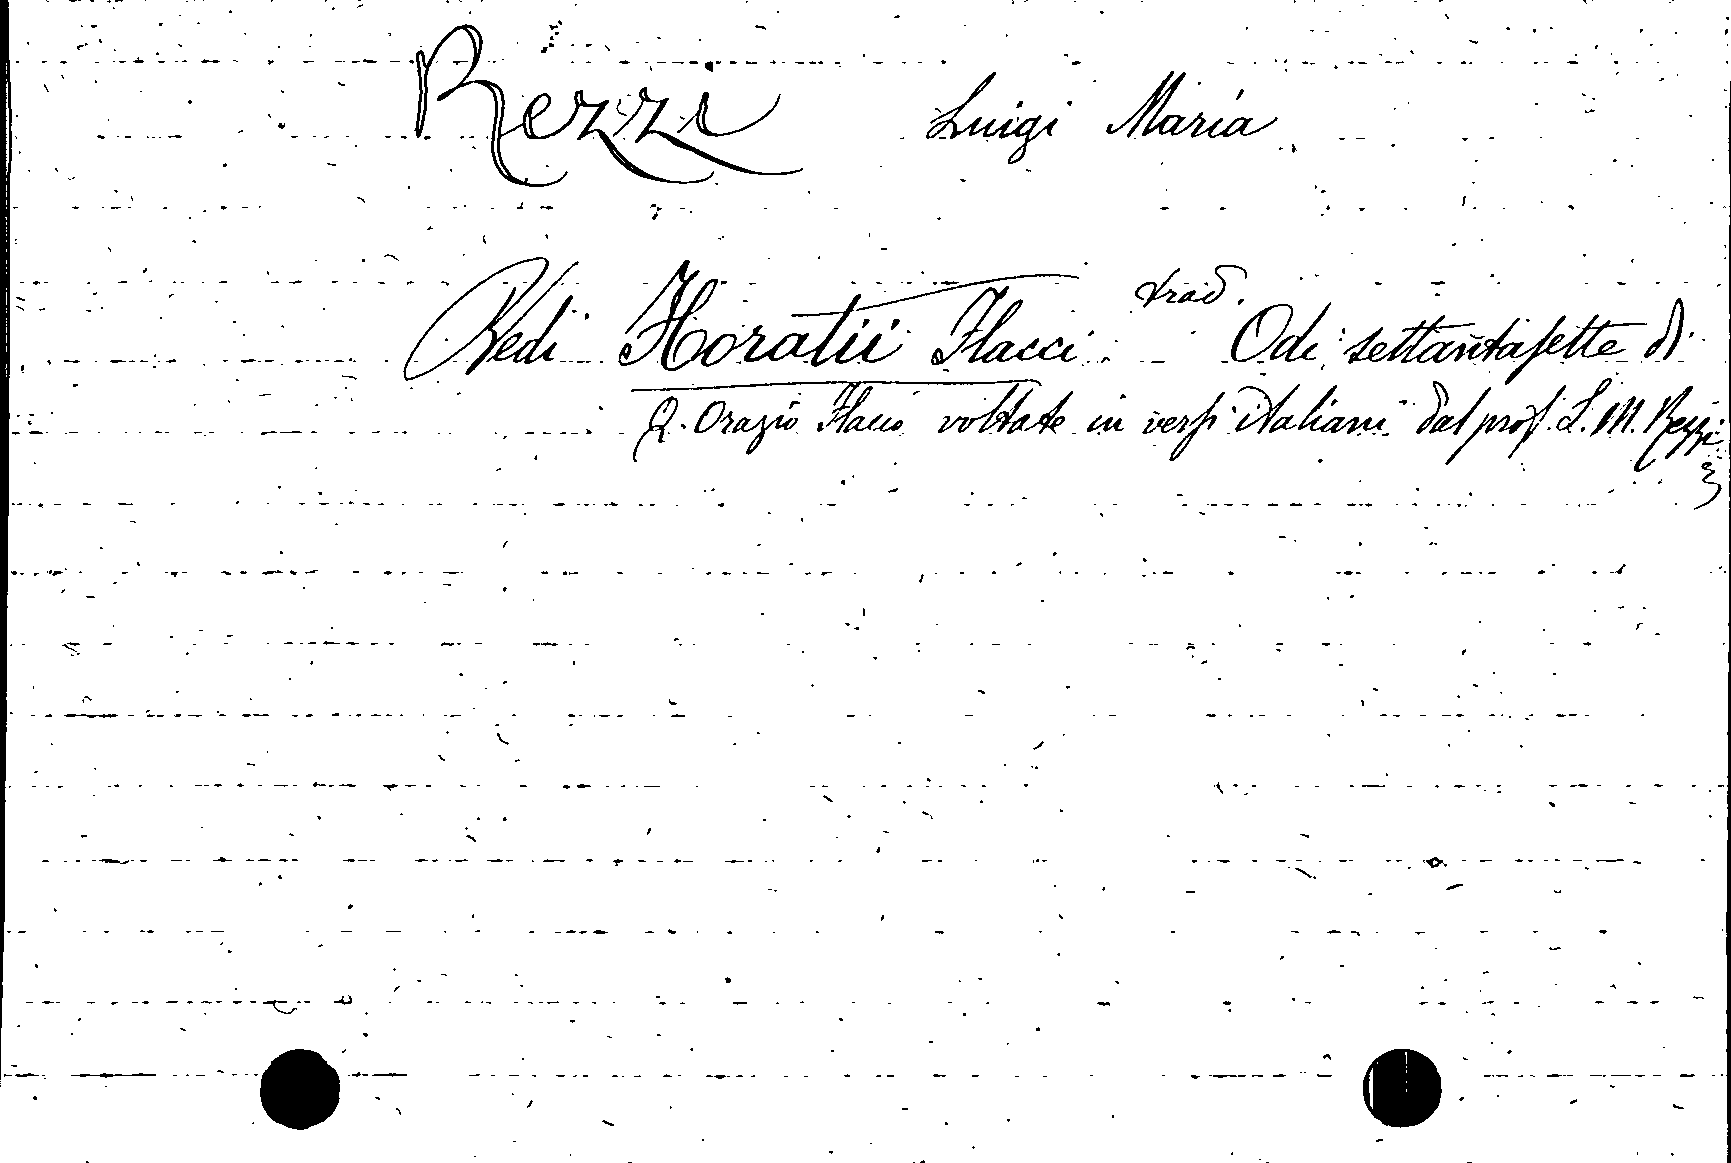 Rezzi Luigi Maria
Vedi Horatii Flacci. trad. Odi settantasette di
Q. Orazio Flacco voltate in versi italiani dal prof. L. M. Rezzi